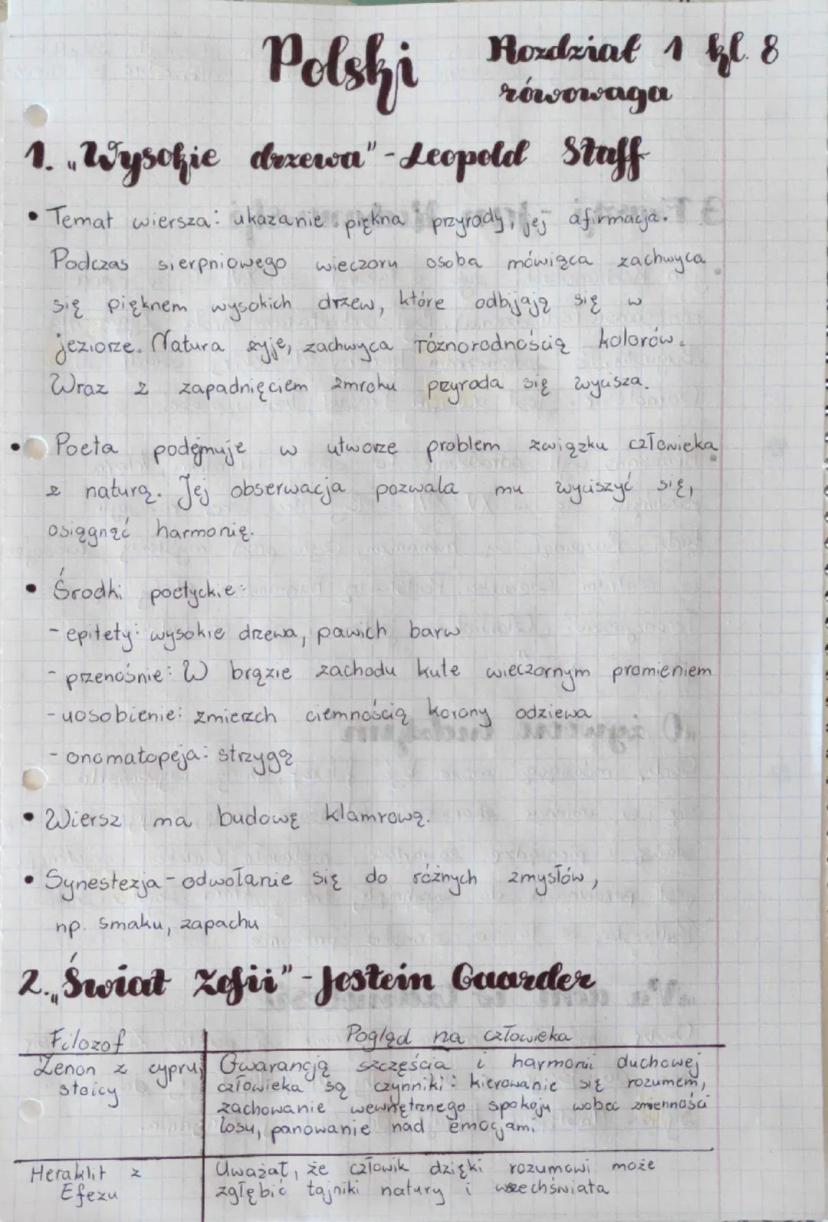 Polski Rozdział 1 kl. 8
równowaga
1. „Wysokie drzewa" - Leopold Staff
• Temat wiersza: ukazanie piękna przyrody, jej afirmacja.
Podczas sierpniowego wieczoru osoba mówiąca zachwyca
się pięknem wysokich drzew, które odbijają się w
jeziorze. Natura żyje, zachwyca różnorodnością kolorów.
Wraz z zapadnięciem zmroku przyroda się wycisza.
• Poeta podejmuje w utworze problem związku człowieka
z naturą. Jej obserwacja pozwala mu wyciszyć się,
osiągnąć harmonię.
• Środki poetyckie:
- epitety: wysokie drzewa, pawich barw
- przenośnie: W brązie zachodu kute wieczornym promieniem
- uosobienie: zmierzch ciemnością korony odziewa
- onomatopeja: strzygą
• Wiersz ma budowę klamrową.
• Synestezja - odwołanie się do różnych zmysłów,
np. smaku, zapachu
2. „Świat Zofii" - Jostein Gaarder
Filozof Pogląd na człowieka
Zenon z cypru, Gwarancją szczęścia i harmonii duchowej
stoicy człowieka są czynniki: kierowanie się rozumem,
zachowanie wewnętrznego spokoju wobec zmienności
losu, panowanie nad emocjami.
Heraklit z Uważał, że człowik dzięki rozumowi może
Efezu zgłębić tajniki natury i wszechświata